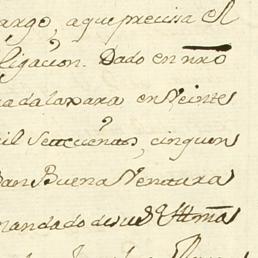 argo, aque precisa el
ligacion. Dado en nrõ
uadalaxara en Veinte
il Setecientos, cinquen
San Buena Ventura
mandado de su S Illmã